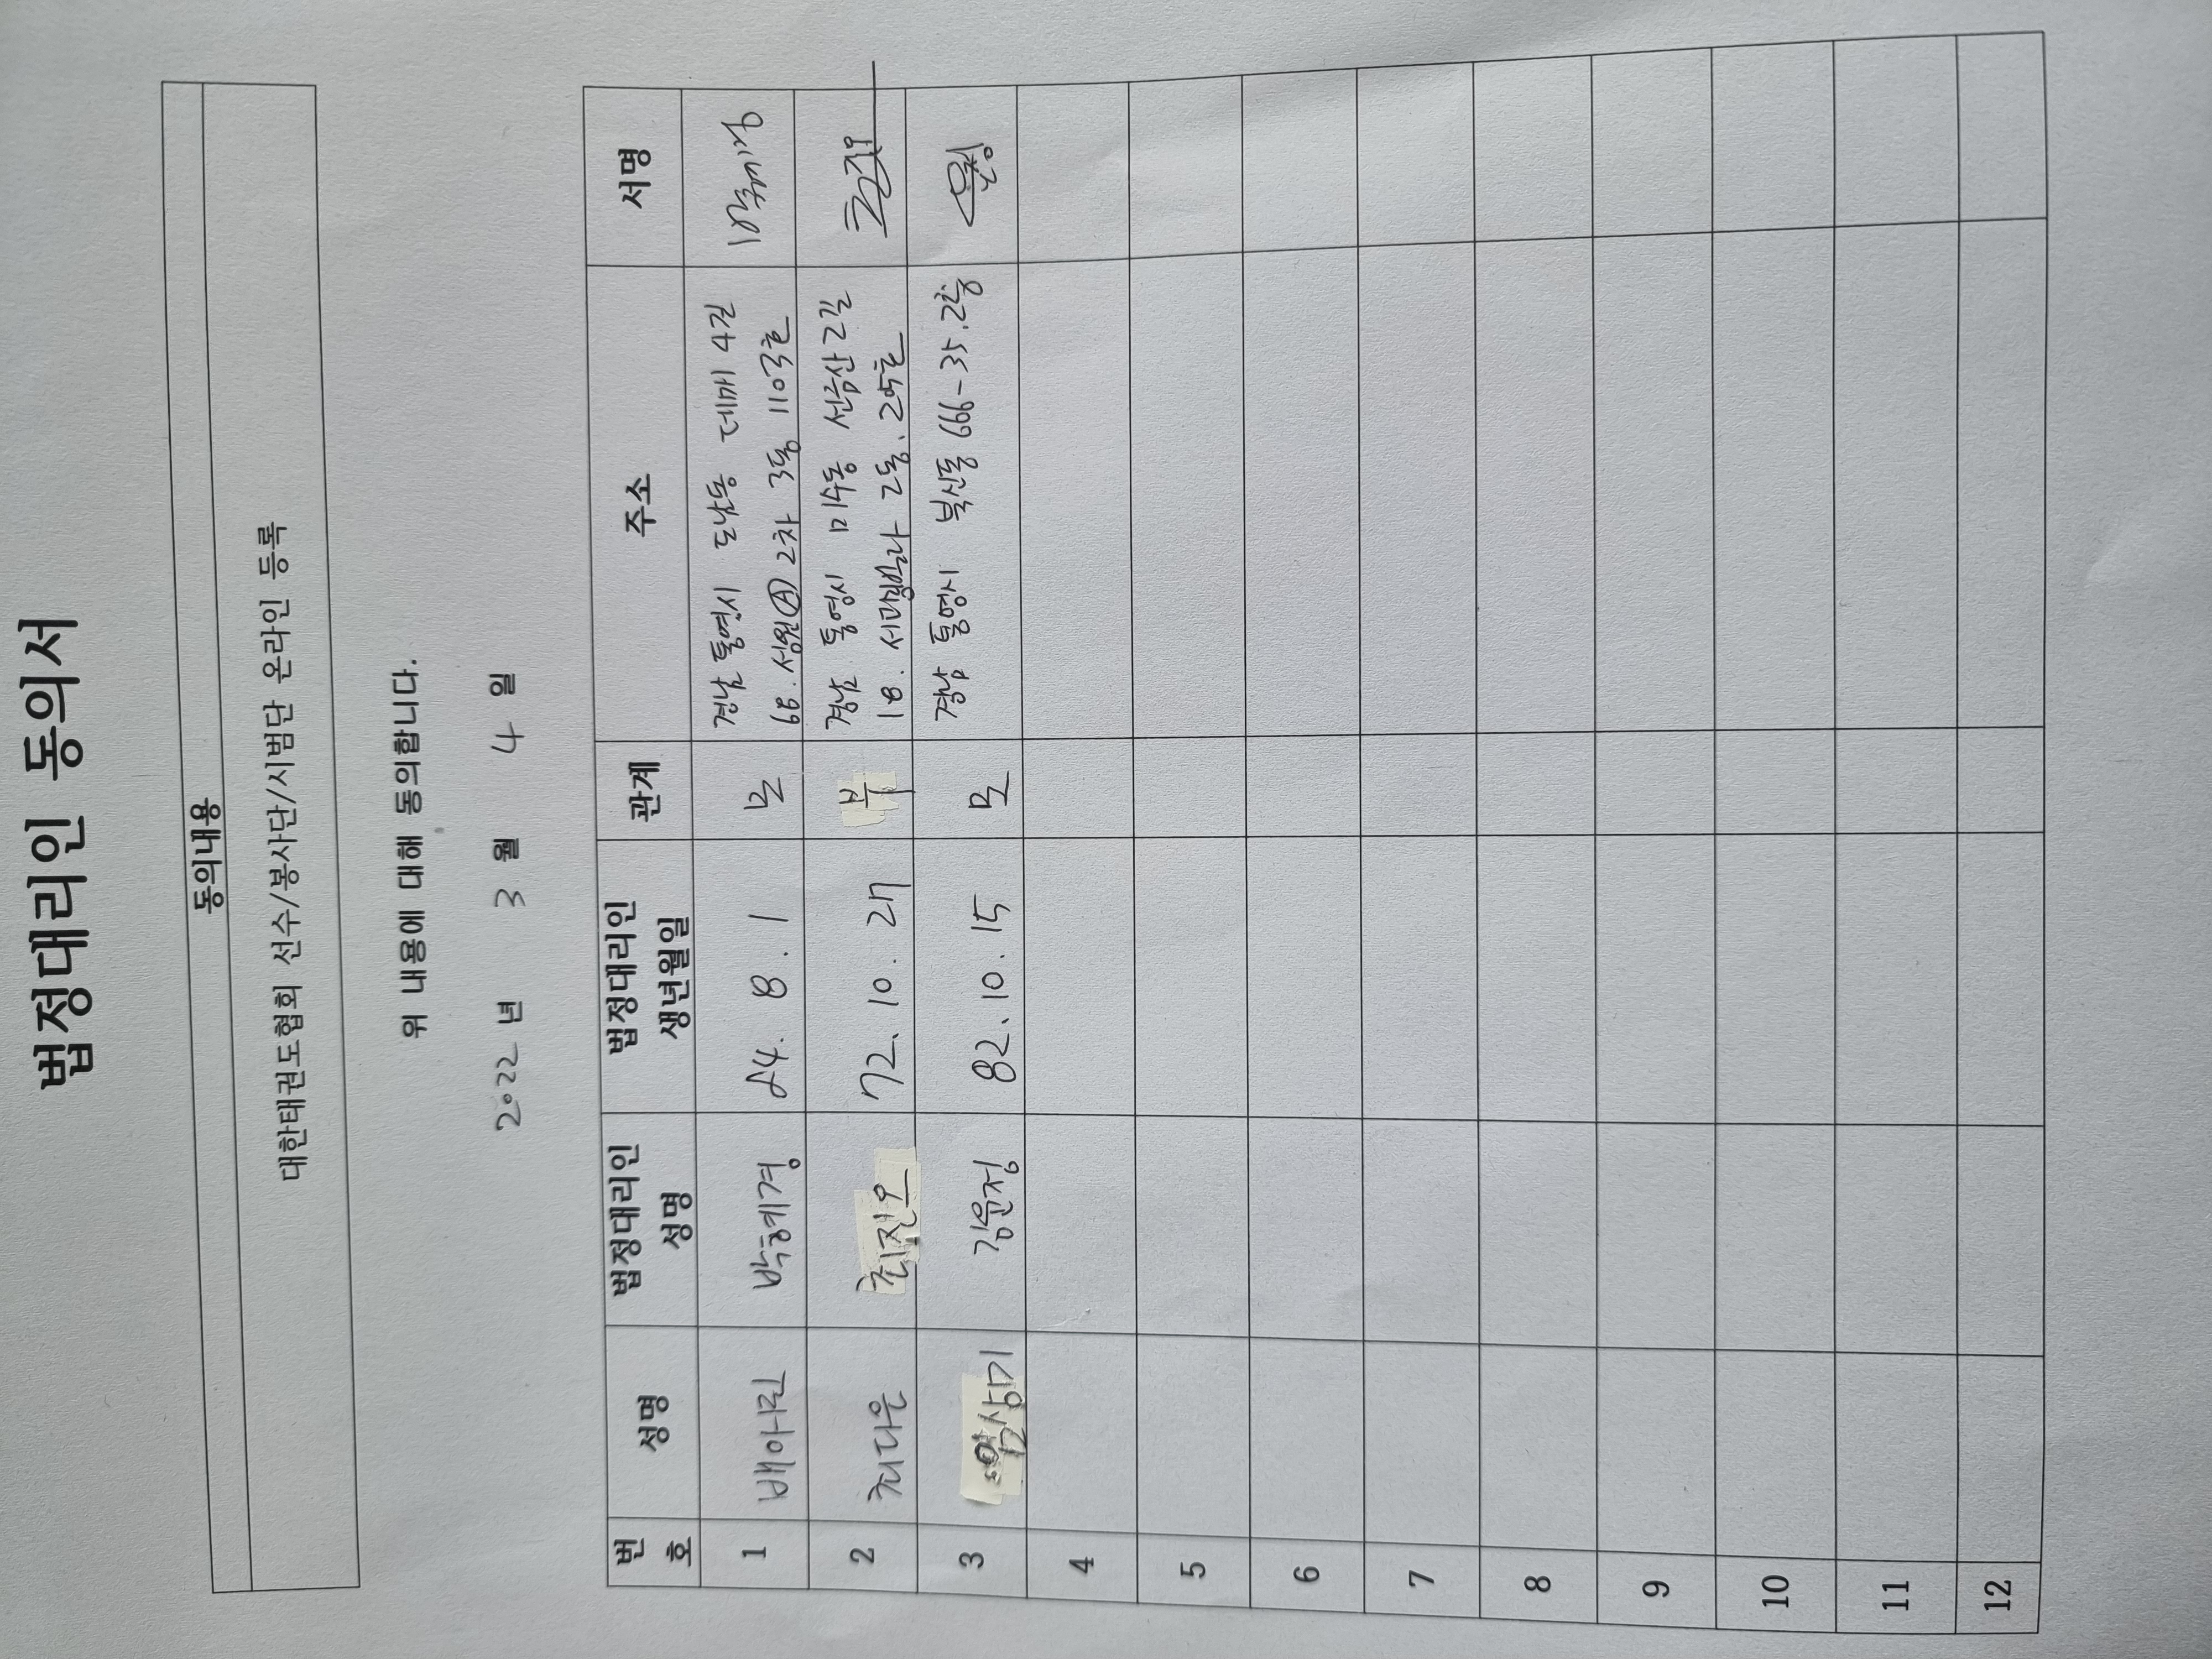 법정대리인 동의서
동의내용
대한태권도협회 선수/봉사단/시범단 온라인 등록
위 내용에 대해 동의합니다.
2022 년 3 월 4 일
번호 성명 법정대리인 성명 법정대리인 생년월일 관계 주소 서명
1 배아린 박혜경 84. 8. 1 모 경남 통영시 도남동 데메 4길
68. 성원Ⓐ 2차 3동 1103호
2 최다은 최진우 72. 10. 27 부 경남 통영시 미수동 산2길
18. 2동.
3 김윤정 82. 10. 15 모 경남 통영시 북신동 666-35. 2층
4
5
6
7
8
9
10
11
12